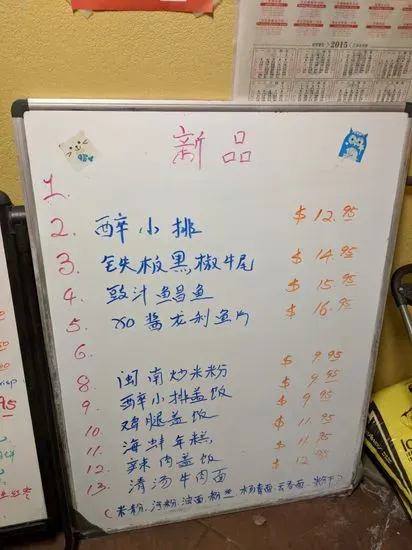 2015
新品
1.
2. 醉小排 $12.95
3. 铁板黑椒牛尾 $14.95
4. 豉汁鲳鱼 $15.95
5. XO酱龙利鱼片 $16.95
6.
8. 闽南炒米粉 $9.95
9. 醉小排盖饭 $9.95
10. 鸡腿盖饭 $9.95
11. 海鲜年糕 $11.95
12. 辣肉盖饭 $11.95
13. 清汤牛肉面 $12.95
(米粉、河粉、油面、粉丝 云吞面、粉干)